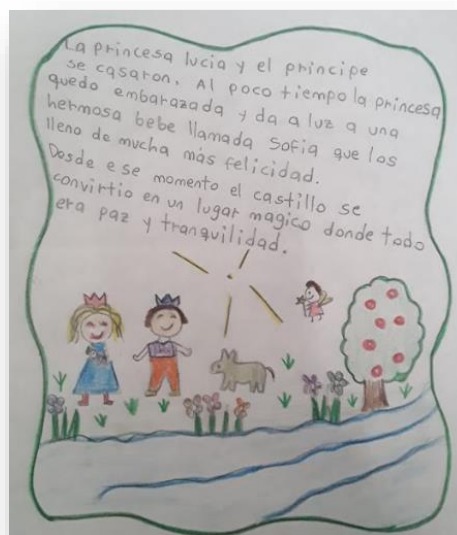 La princesa lucia y el principe
se casaron. Al poco tiempo la princesa
quedo embarazada y da a luz a una
hermosa bebe llamada Sofia que los
lleno de mucha más felicidad.
Desde ese momento el castillo se
convirtio en un lugar magico donde todo
era paz y tranquilidad.